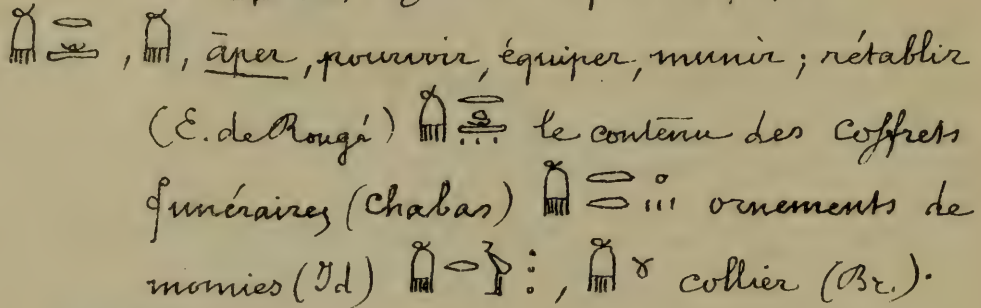 , , āper, pourvoir, équiper, munir; rétablir
(E. de Rougé) le contenu des coffrets
funéraires (Chabas) ornements de
momies (Id) , collier (Br.).